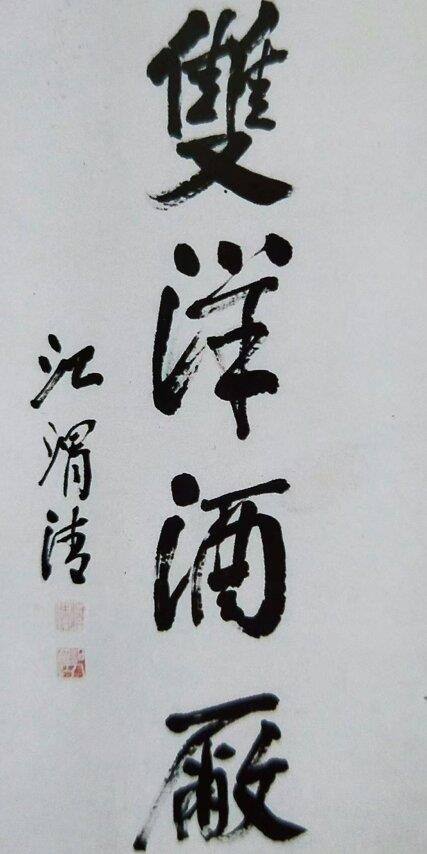 雙洋酒厰
江渭清